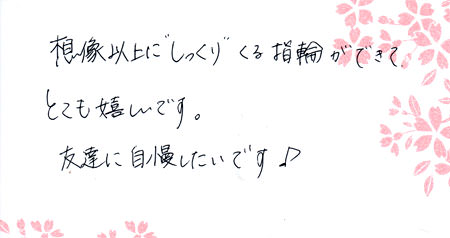 想像以上に"しっくり"くる指輪ができて、
とても嬉しいです。
友達に自慢したいです♪